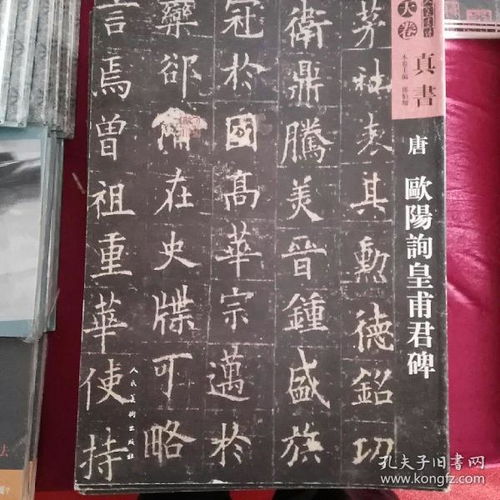 大卷
真書
唐 歐陽詢皇甫君碑
茅社表其勳德銘功
衛鼎騰美晉鍾盛族
冠於國高華宗邁於
欒郤備在史牒可略
言焉曾祖重華使持
人民美術出版社
法
孔夫子旧书网
www.kongfz.com